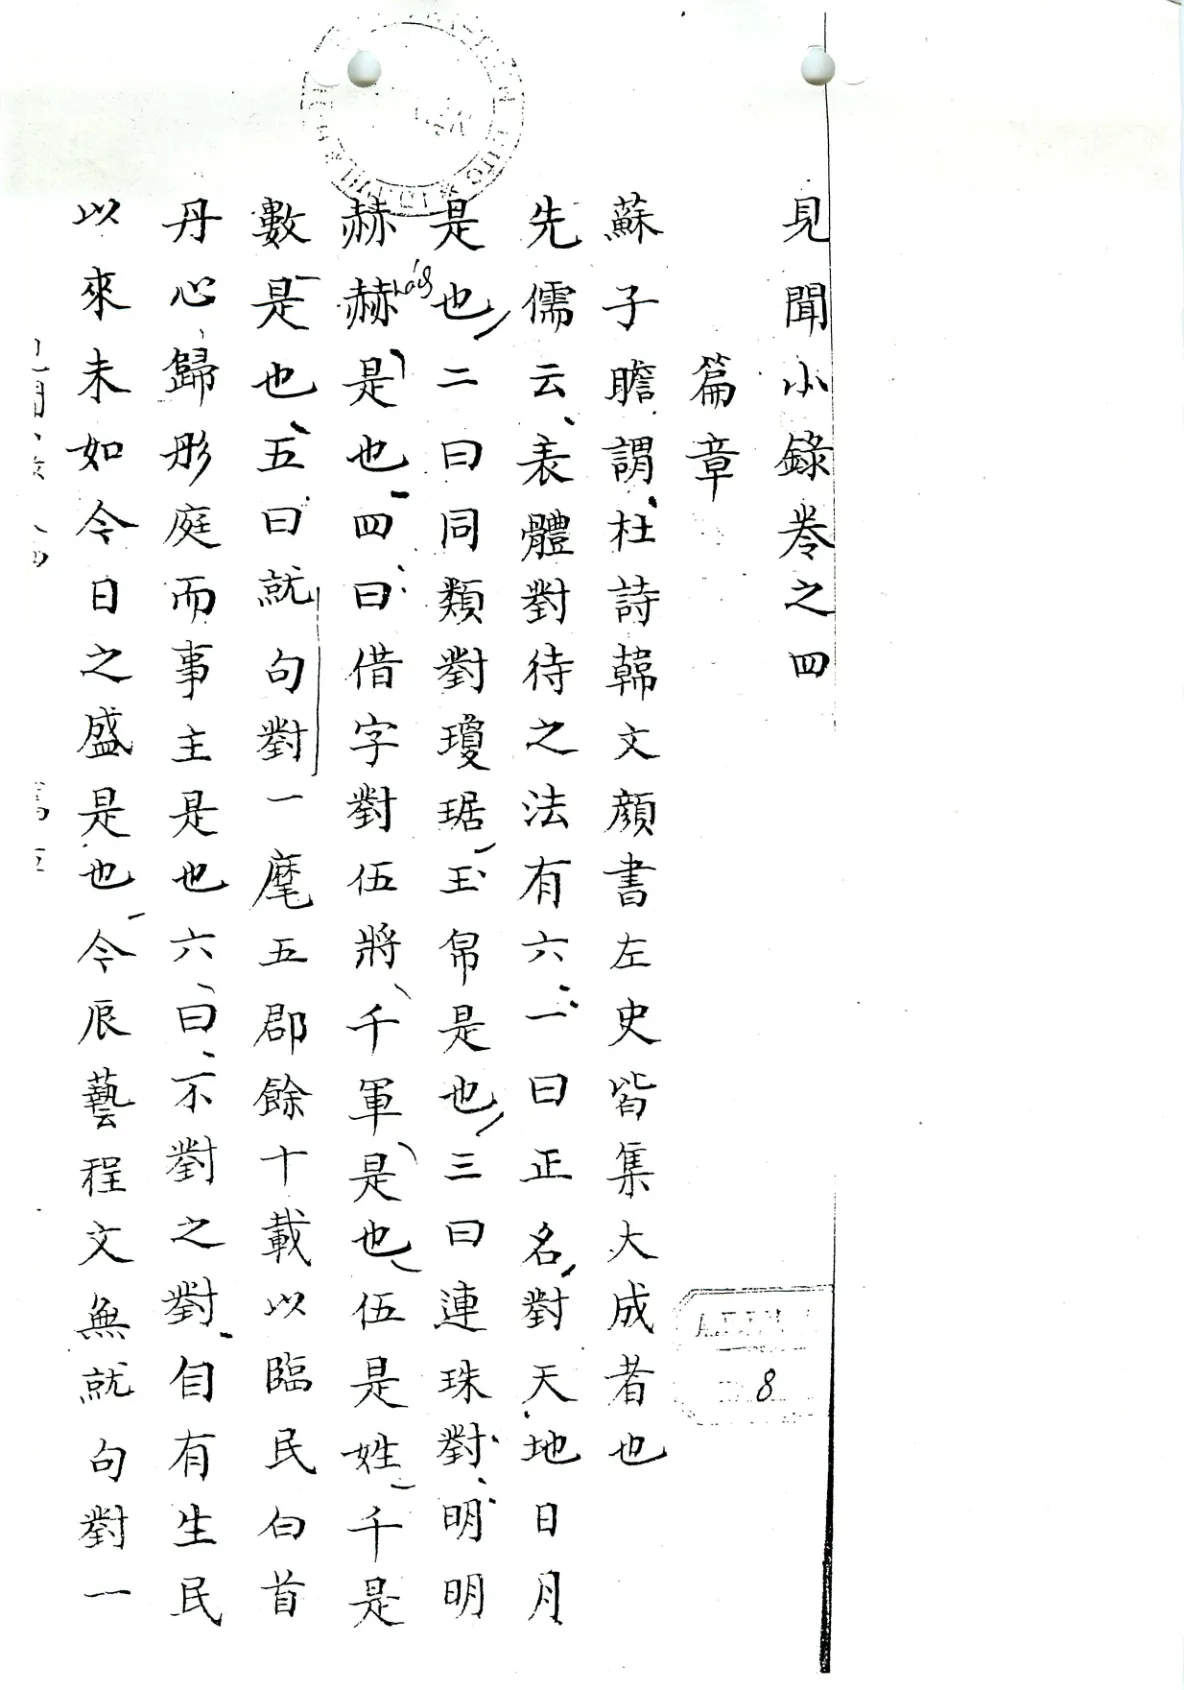 見聞小錄卷之四
篇章
蘇子瞻謂杜詩韓文顏書左史皆集大成者也
先儒云表體對待之法有六一曰正名對天地日月
是也二曰同類對瓊琚玉帛是也三曰連珠對明明
赫赫是也四曰借字對伍將千軍是也伍是姓千是
數是也五曰就句對一麾五郡餘十載以臨民白首
丹心歸彤庭而事主是也六曰不對之對自有生民
以來未如今日之盛是也今辰藝程文無就句對一
8